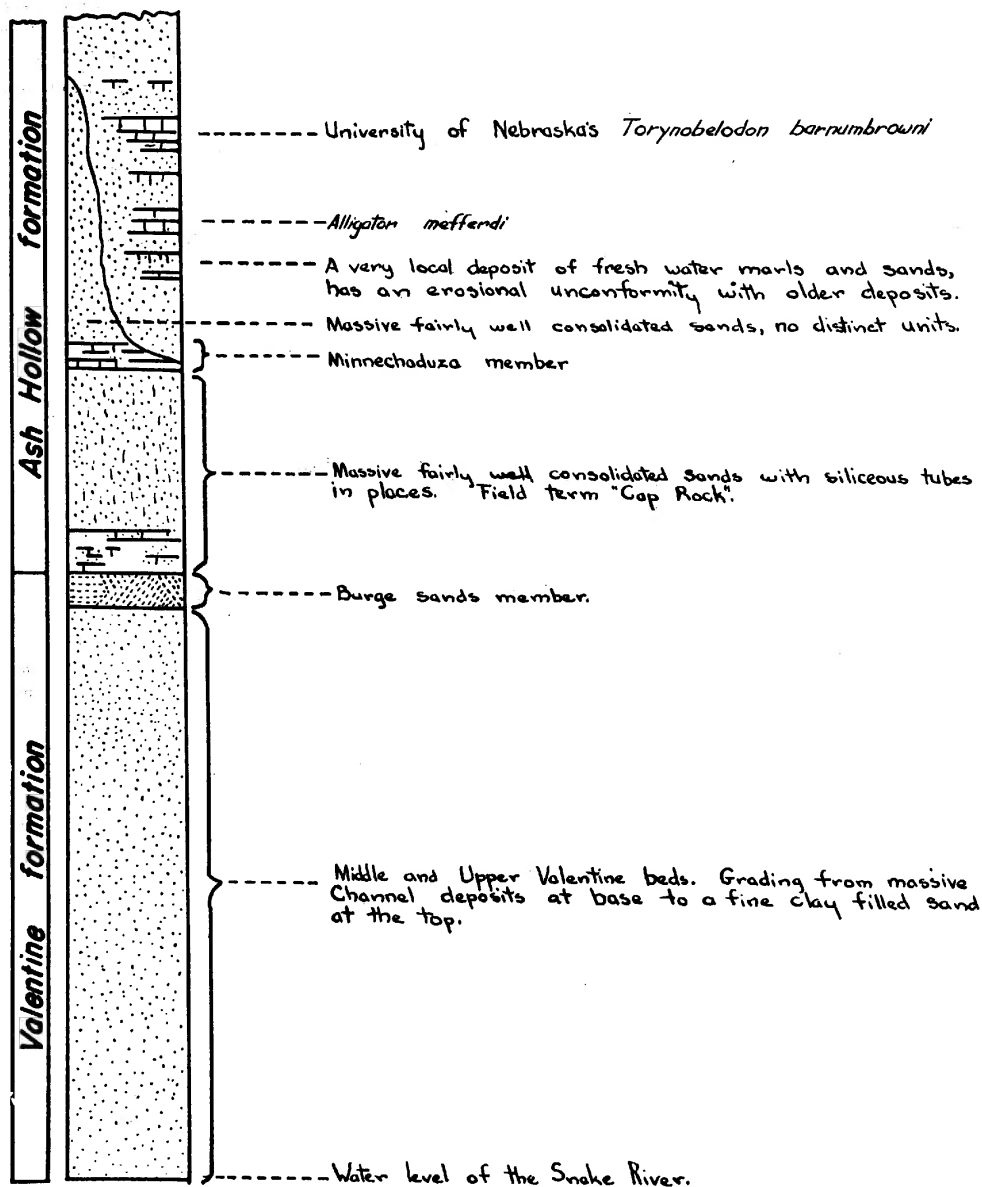 Ash Hollow formation
Valentine formation
University of Nebraska's Torynobelodon barnumbrowni
Alligator mefferdi
A very local deposit of fresh water marls and sands,
has an erosional unconformity with older deposits.
Massive fairly well consolidated sands, no distinct units.
Minnechaduza member
Massive fairly well consolidated sands with siliceous tubes
in places. Field term "Cap Rock".
Burge sands member.
Middle and Upper Valentine beds. Grading from massive
Channel deposits at base to a fine clay filled sand
at the top.
Water level of the Snake River.